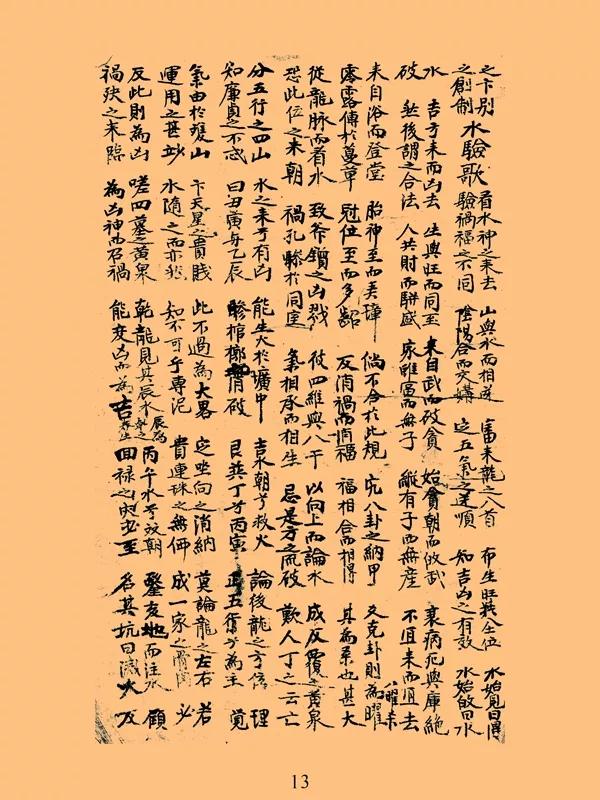 之卞別 看水神之來去 山與水而相逆 富來龍之八首 布生旺 水始見曰得
之創制 水驗歌 驗禍福之不同 陰陽合而交媾 五氣之逆順 知吉凶之有效 水始改曰水
水 吉方來而凶去 生與旺而同至 來自武而破貪 始貪朝而改武 衰病死與庫絕
破 然後謂之合法 人共財而駢盛 家雖富而無子 縱有子而無產 不宜來而宜去
來自浴而登堂 胎神至而弄璋 倘不合於此規 究八卦之納甲 又克卦則為曜 八曜來
露露傳於蔓草 冠位至而多齠 反消禍而消福 福相合而相得 其為 也甚大
從龍脈而看水 致斧鑕之凶戮 彼四維與八干 以向上而論水 成反覆之黃泉
恐此位之來朝 禍孔慘於同 氣相承而相生 忌是方之流破 歎人丁之云亡
分五行之四山 水之來亏有凶 能生火於壙中 吉水朝亏救火 論後龍之方位 理
知廉貞之不忒 曰丑寅與乙辰 慘棺槨 破 艮 丁亏丙寅 五 為主 覺
氣由於雙山 卞天星之貴賤 此不過為大畧 定坐向之消納 莫論龍之左右 若
運用之甚妙 水隨之而亦然 知不可乎專泥 貴連珠之無 成一家之骨肉 必
反此則為凶 嗟四墓之黃泉 乾龍見其辰水 辰為 丙午水亏 朝 鑿亥地而注水 顧
禍殃之來臨 為凶神而召禍 能變凶而為吉 回祿之災必至 名其坑曰滅火 反
13